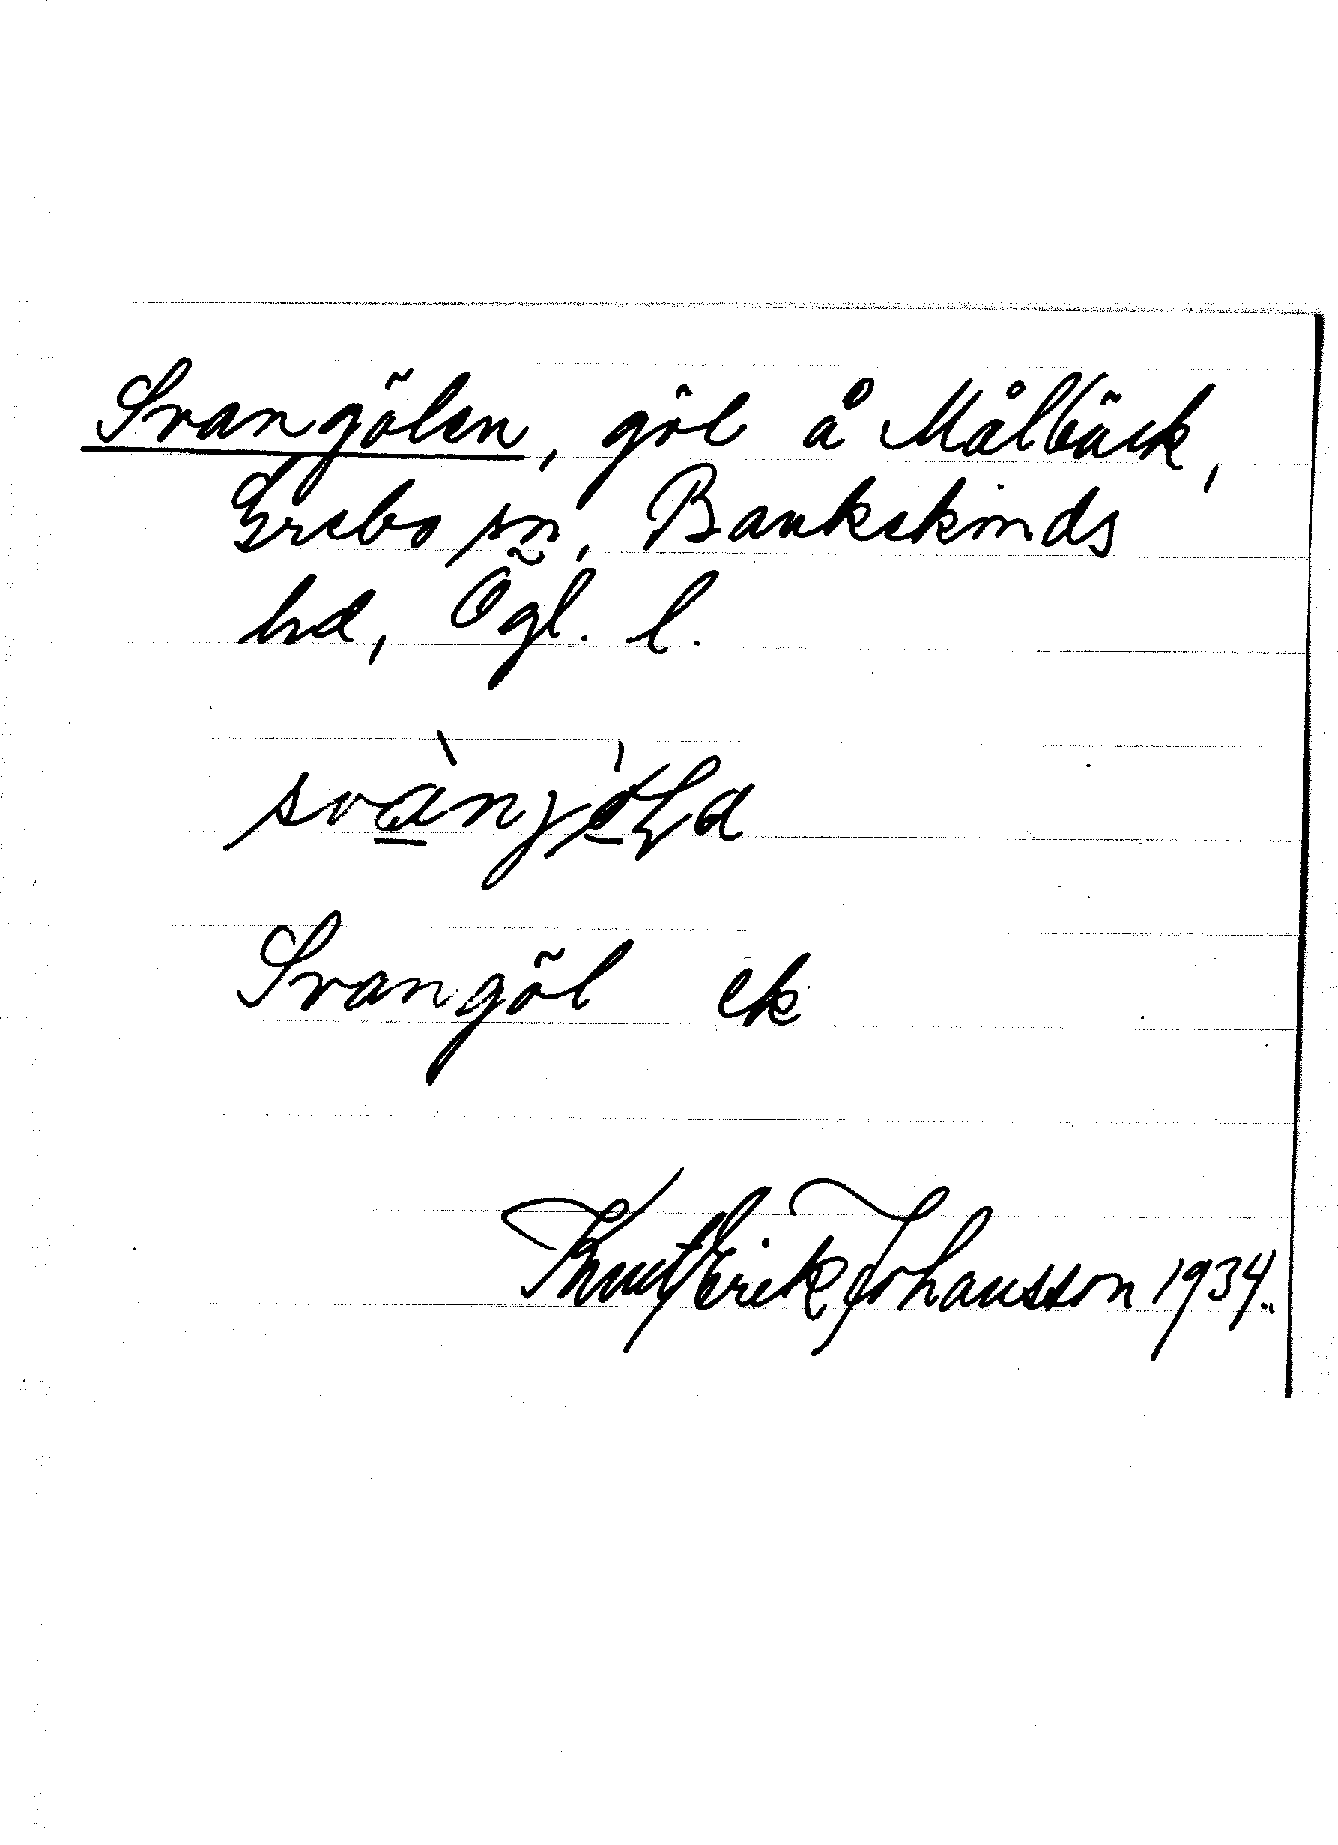 Svangölen, göl å Målbäck,
Grebo sn, Bankekinds
hd, Ögl. l.
Svangöl ek
Knut Erik Johansson 1934.